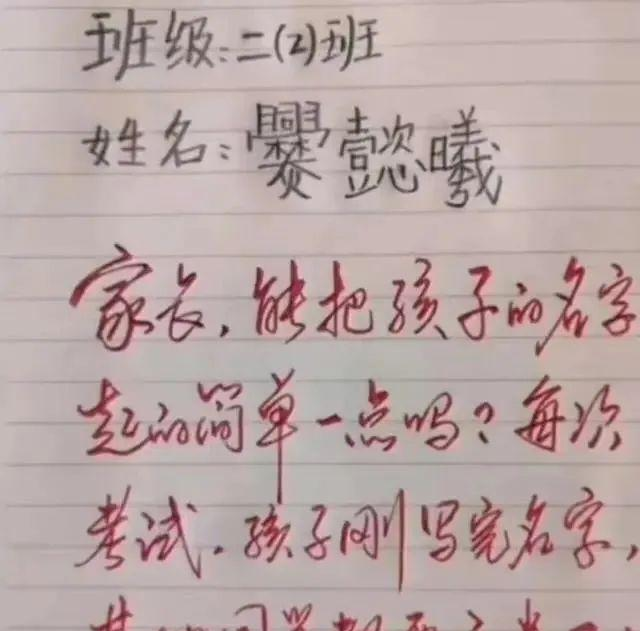 班级:二(2)班
姓名:爨懿曦
家长,能把孩子的名字
起的简单一点吗?每次
考试,孩子刚写完名字,